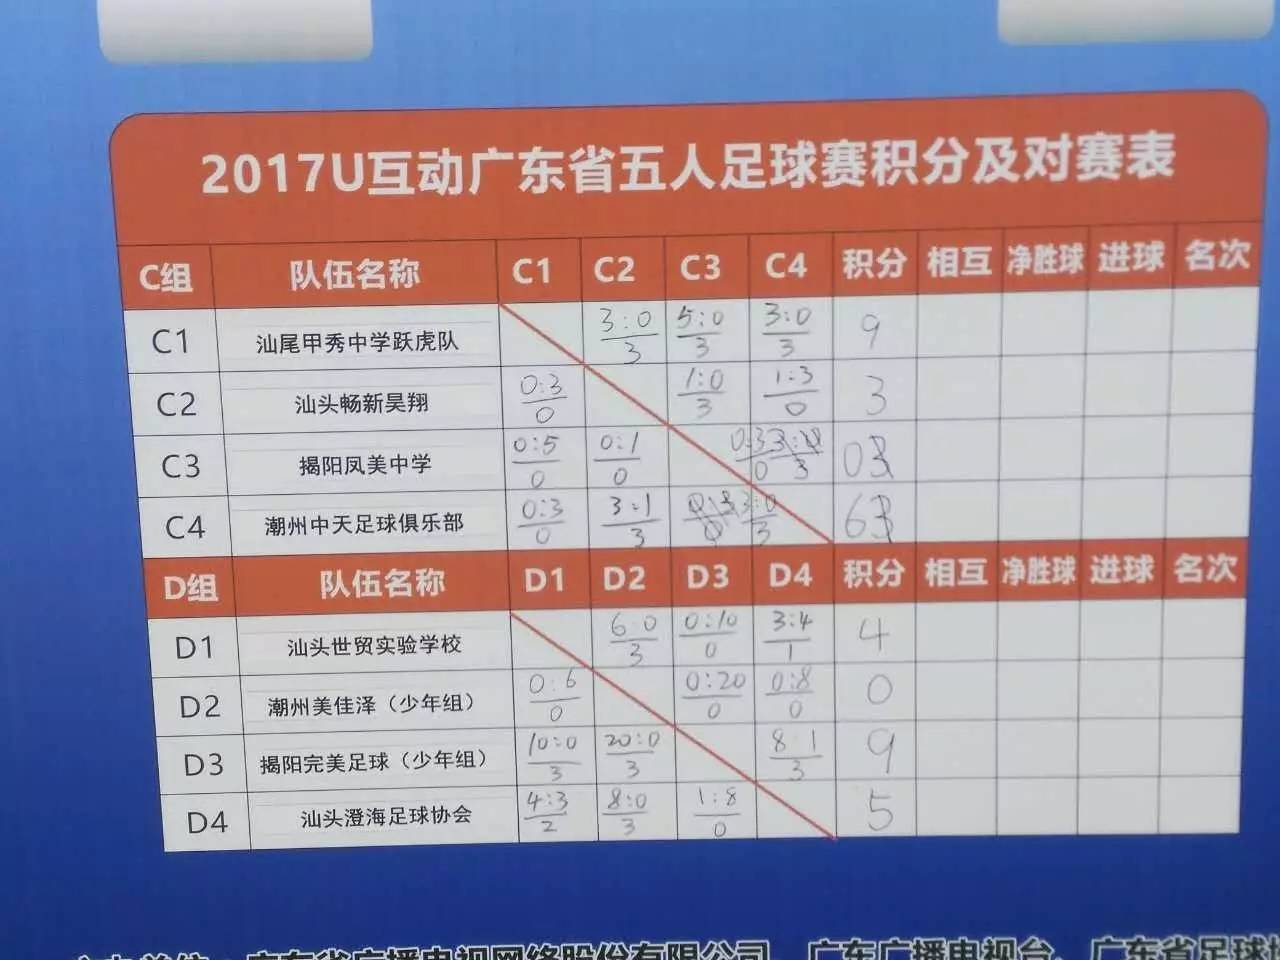 2017U互动广东省五人足球赛积分及对赛表
C组 队伍名称 C1 C2 C3 C4 积分 相互 净胜球 进球 名次
C1 汕尾甲秀中学跃虎队 3:0/3 5:0/3 3:0/3 9
C2 汕头畅新昊翔 0:3/0 1:0/3 1:3/0 3
C3 揭阳凤美中学 0:5/0 0:1/0 0:3/0 0
C4 潮州中天足球俱乐部 0:3/0 3:1/3 3:0/3 6
D组 队伍名称 D1 D2 D3 D4 积分 相互 净胜球 进球 名次
D1 汕头世贸实验学校 6:0/3 0:10/0 3:4/1 4
D2 潮州美佳泽（少年组） 0:6/0 0:20/0 0:8/0 0
D3 揭阳完美足球（少年组） 10:0/3 20:0/3 8:1/3 9
D4 汕头澄海足球协会 4:3/2 8:0/3 1:8/0 5
广东省广播电视网络股份有限公司、广东广播电视台、广东省足球